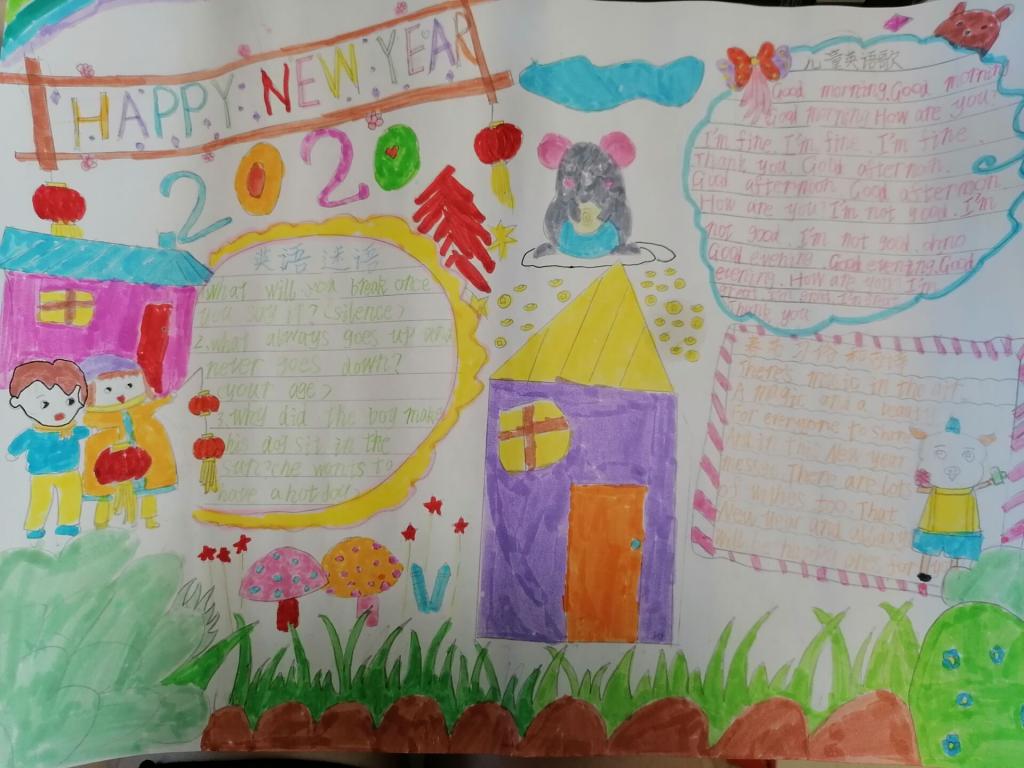 HAPPY NEW YEAR
2020
英语谜语
1.What will you break once
you say it? <silence>
2.what always goes up and
never goes down?
<your age>
3.why did the boy make
his dog sit in the
sun? <he wants to
have a hot dog>
儿童英语歌
Good morning.Good morning
Good morning How are you?
I'm fine. I'm fine. I'm fine.
Thank you. Good afternoon.
Good afternoon. Good afternoon.
How are you? I'm not good. I'm
not good. I'm not good. ohno
Good evening. Good evening.Good
evening. How are you? I'm
Thank you
There's music in the air.
A magic and a beauty
For everyone to share
And in this New year
There are lots
of wishes too. That
New Year and